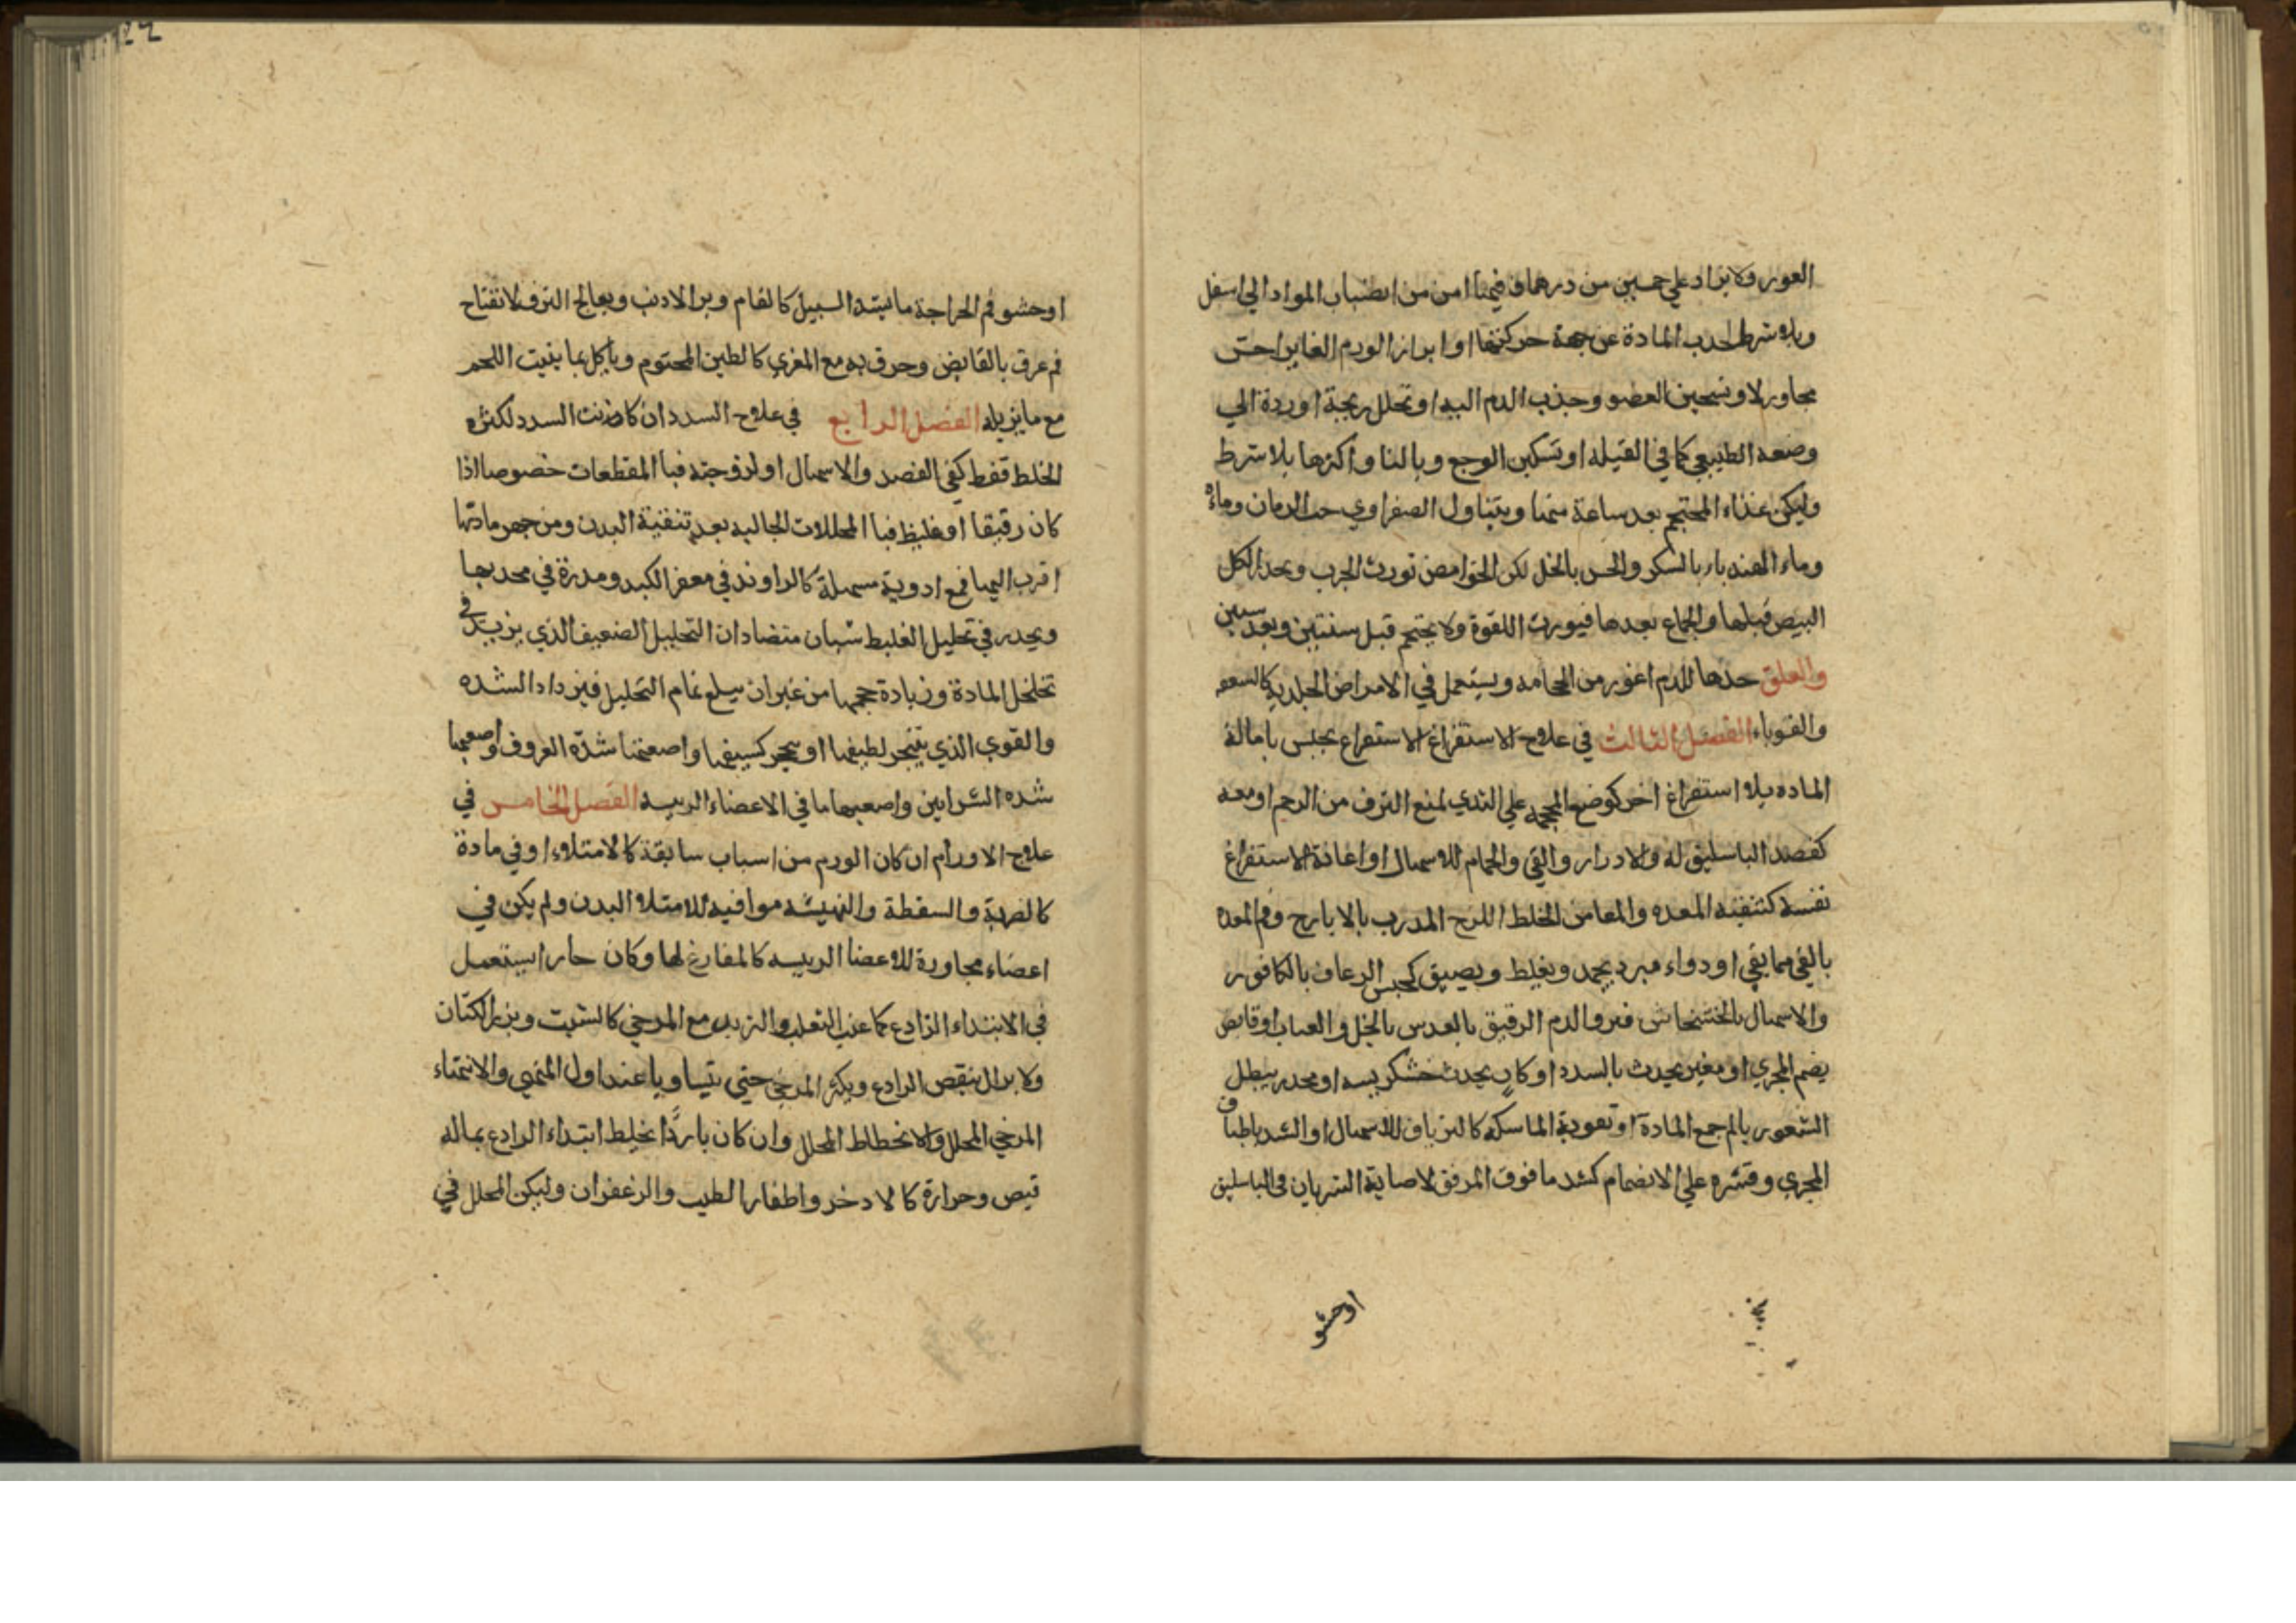 الغور ولا يزاد علي خمسين من درهما فيها امن من انصباب المواد الي اسفل
وبلا شرط لجذب المادة عن جهة حركتها او ابراز الورم الغاير احتي
مجاور لا وتسخين العضو وجذب الدم اليه او تحلل ريحية او ردة الي
وضعه الطبيعي كما في القيله او تسكين الوجع وبالنا واكثرها بلا شرط
وليكن غذاء المحتجم بعد ساعة منها ويتناول الصفراوي حب الرمان وماؤه
وماء الهندباء بالسكر والخس بالخل لكن الحوامض تورث الجرب ويحذر اكل
البيض قبلها والجماع بعدها فيورث اللقوة ولا يحتجم قبل سنتين وبعد ستين
والعلق جذها للدم اغور من الحجامه ويستعمل في الامراض الجلدية كالسعفه
والقوباء الفصل الثالث في علاج الاستفراغ الاستفراغ يحبس بامالة
الماده بلا استفراغ اخر كوضع المحجمه علي الثدي لمنع النزف من الرحم او معه
كفصد الباسليق له والادرار والقي والحمام للاسهال او اعانة الاستفراغ
نفسه كتنقيه المعده والمعا من الخلط اللزج المذرب بالايارج وفم المعده
بالقي مما بقي او دواء مبرد يجمد ويغلظ ويضيق كحبس الرعاف بالكافور
والاسهال بالخشخاش والدم الرقيق بالعدس بالخل والعناب او قابض
يضم المجري او مغير يحدث بالسدد او كاو يحدث خشكريسه او مخدر يبطل
الشعور بالم جمع المادة او تقوية الماسكه كالترياق للاسهال او الشد باطباق
المجري وقشره علي الانضمام كشد ما فوق المرفق لاصابة الشريان في الباسليق
اوحشو
اوحشو فم الجراحة ما يسد السبيل كالقام وبر الارنب ويعالج النزف لانفتاح
فم عرق بالقابض وحرق به مع المغري كالطين المختوم وبآكل بما ينبت اللحم
مع ما يزيله الفصل الرابع في علاج السدد ان كانت السدد لكثره
الخلط فقط كفي الفصد والاسهال او لزوجته فبا المقطعات خصوصا اذا
كان رقيقا او غليظ فبا المحللات الجاليه بعد تنقية البدن ومن مادتها
اقرب اليها فمع ادوية مسهلة كالراوند في مقعر الكبد ومدرة في محدبها
ويحذر في تحليل الغليظ شيان متضادان التحليل الضعيف الذي يزيد في
تخلخل المادة وزيادة حجمها من غير ان يبلغ تمام التحليل فيزداد الشده
والقوي الذي يتبخر لطيفها او يتحجر كسيفها واصعبها شدة العروف واصعبها
شده الشرايين واصعبها ما في الاعضاء الرييسه الفصل الخامس في
علاج الاورام ان كان الورم من اسباب سابقة كالامتلاء او في مادة
كالضربة والسقطة والنهيشه موافيه للامتلا البدن ولم يكن في
اعضاء مجاورة للاعضا الرييسه كالمفارغ لها وكان حارا يستعمل
في الابتداء الرادع كما عنب الثعلب والزبد مع المرخي كالشبت وبزر الكتان
ولا يزال ينقص الرادع ويكثر المرخي حتي يتساويا عند اول المنتهي والانتهاء
المرخي المحلل والانحطاط المحلل وان كان باردا يخلط ابتداء الرادع بماله
قبض وحرارة كالادخر واظفار الطيب والزعفران وليكن المحلل في